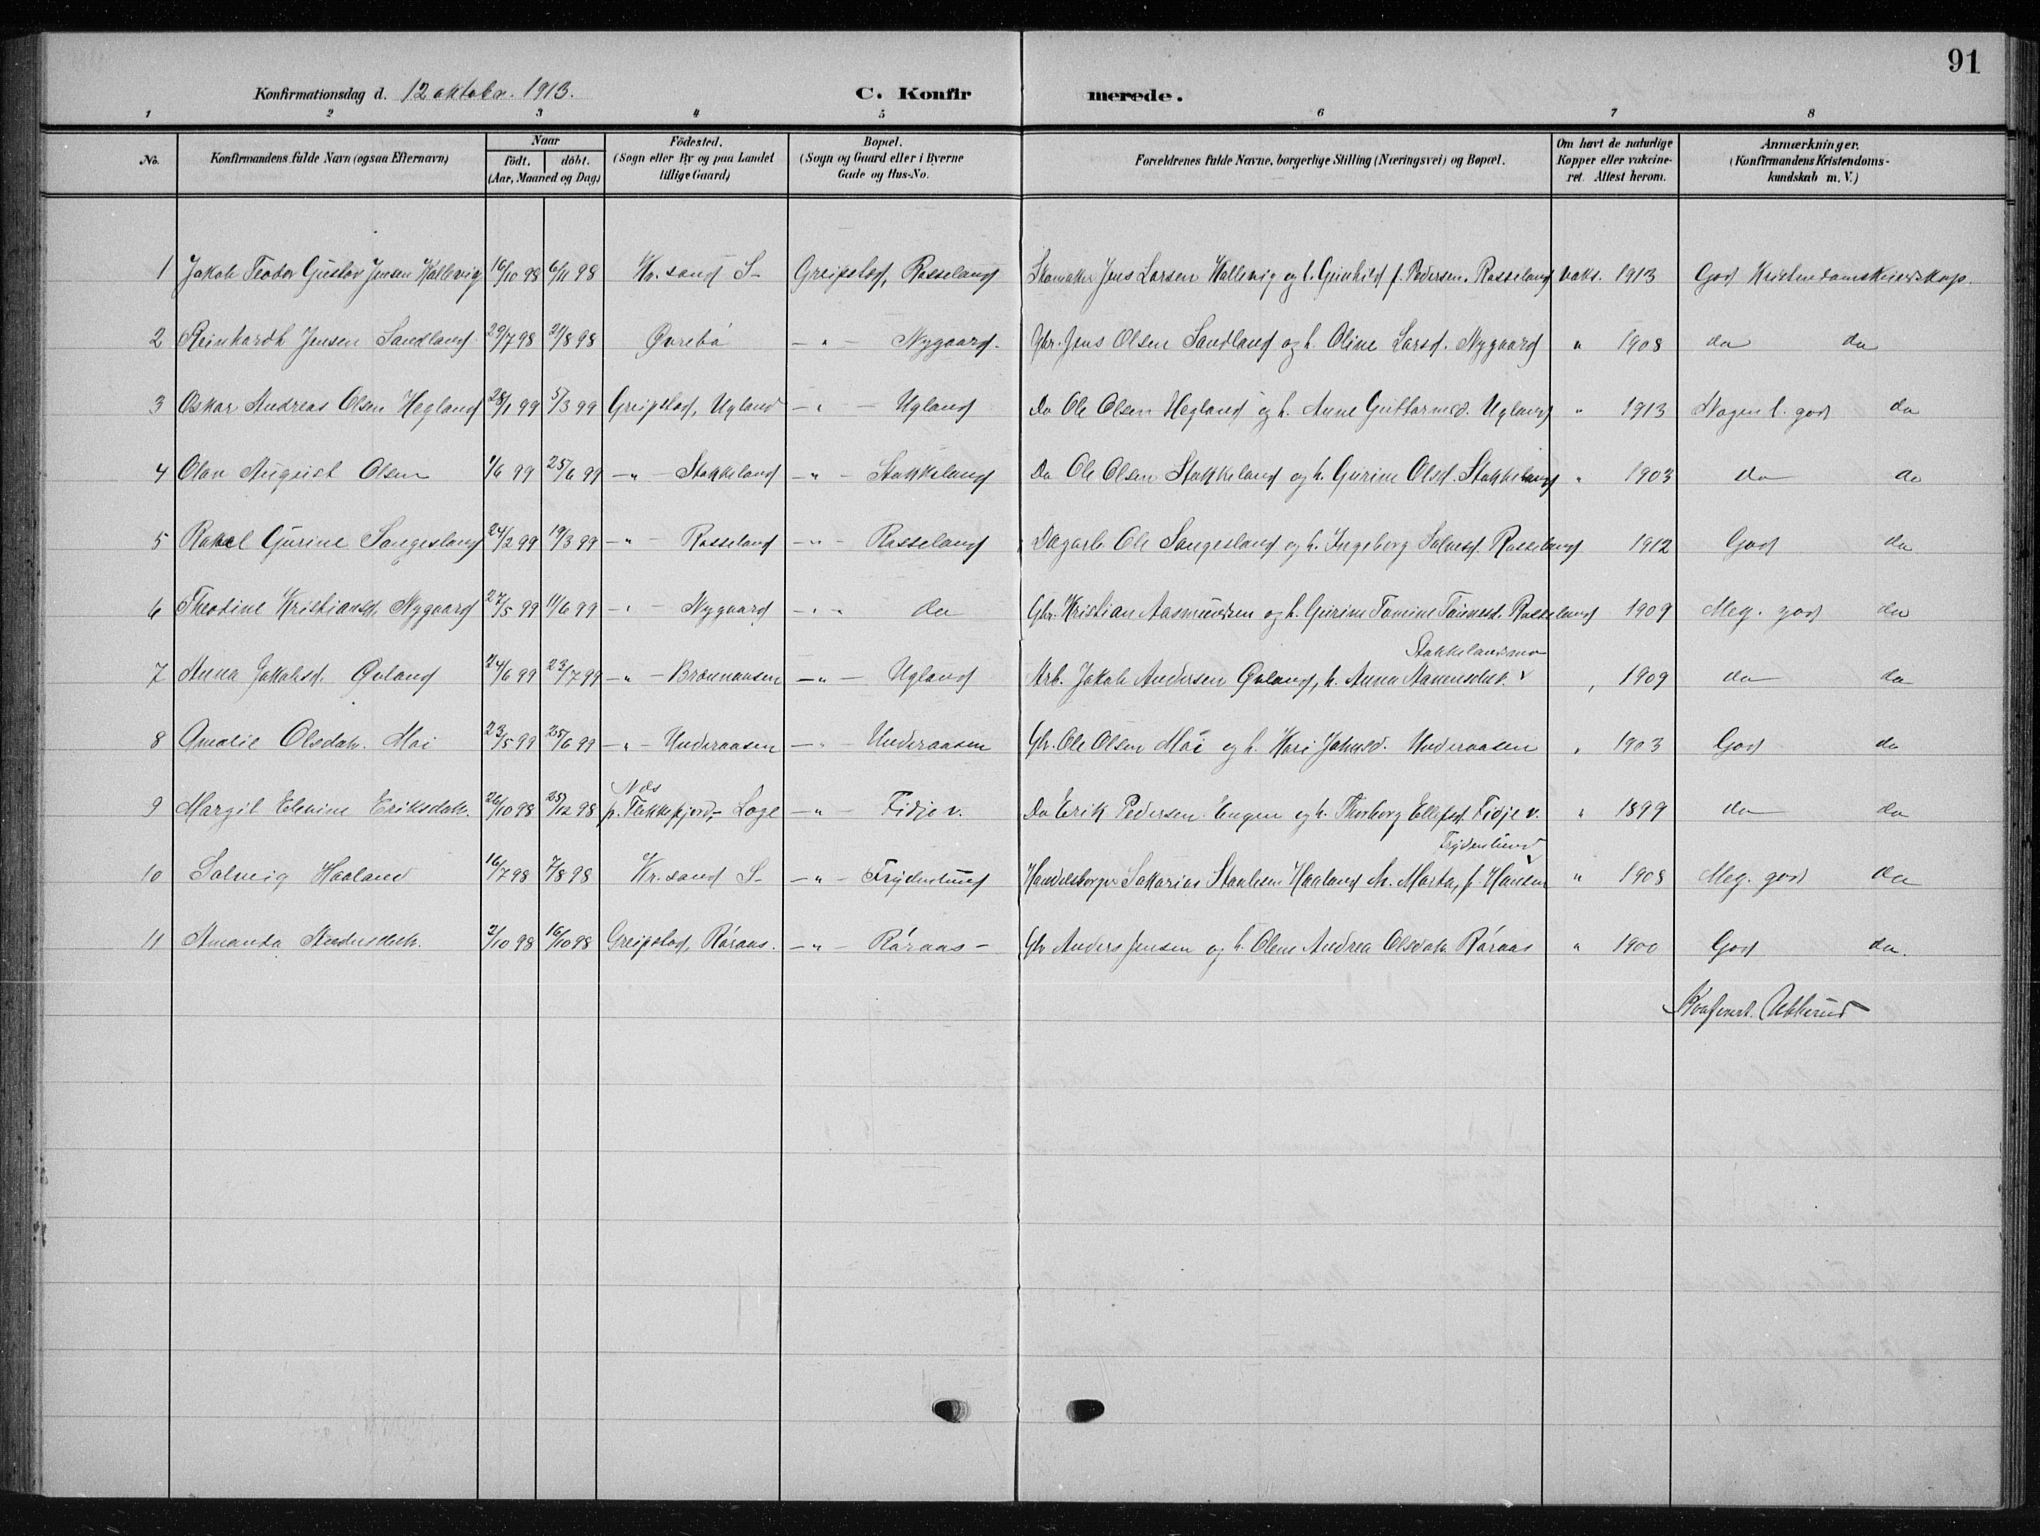 91
Konfirmationsdag d. 12 oktober. 1913. C. Konfirmerede.
1 2 3 4 5 6 7 8
No. Konfirmandens fulde Navn (ogsaa Efternavn) Naar født. døbt. (Aar, Maaned og Dag) Fødested. (Sogn eller By og paa Landet tillige Gaard) Bopæl. (Sogn og Gaard eller i Byerne Gade og Hus-No. Forældrenes fulde Navne, borgerlige Stilling (Næringsvei) og Bopæl. Om havt de naturlige Kopper eller vakcineret. Attest herom. Anmærkninger. (Konfirmandens Kristendomskundskab m. V.)
1 Jakob Teodor Gustav Jensen Kallevig 16/10 98 6/11 98 Kr.sand S- Greipstad, Rosseland Skomaker Jens Larsen Kallevig og h. Gunhild f. Pedersen. Rosseland vaks. 1913 God Kristendomskundskap.
2 Reinhardt Jensen Sandland 29/7 98 21/8 98 Øvrebö — " — Nygaard. Gbr. Jens Olsen Sandland og h. Oline Larsd. Nygaard " 1908 do do
3 Oskar Andreas Olsen Hegland 28/1 99 5/3 99 Greipstad, Ugland — " — Ugland Do Ole Olsen Hegland og h. Anne Guttormsd. Ugland " 1913 Nogenl. god do
4 Olav August Olsen 1/6 99 25/6 99 — " — Stokkeland — " — Stokkeland Do Ole Olsen Stokkeland og h. Gurine Olsd. Stokkeland " 1903 do do
5 Rakel Gurine Sangesland 24/2 99 19/3 99 — " — Rosseland — " — Rosseland Dagarb. Ole Sangesland og h. Ingeborg Salvesd. Rosseland 1912 God do
6 Theodine Kristiansd. Nygaard 27/5 99 11/6 99 — " — Nygaard — " — do Gbr. Kristian Aasmundsen og h. Gurine Tomine Tönnesd. Rosseland 1909 Meg. god do
Stokkelandsmo
7 Anna Jakobsd. Øvland 24/6 99 23/7 99 — " — Brönnaasen — " — Ugland Arb. Jakob Andersen Øvland, h. Anna 1909 do do
8 Amalie Olsdatr. Moi 23/5 99 25/6 99 — " — Underaasen — " — Underaasen Gbr. Ole Olsen Moi og h. Kari Johnsd. Underaasen " 1903 God do
Næs
9 Margit Elevine Eriksdatr. 26/10 98 25/12 98 p. Flekkefjord,- Loge — " — Fidje v. Do Erik Pedersen Engen og h. Thorborg Ellefsd. Fidje v. " 1899 do do
Frydenlund
10 Solveig Haaland 16/7 98 7/8 98 Kr.sand S- — " — Frydenlund Handelsborger Sakarias Staalesen Haaland h. Marta, f. Hansen " 1908 Meg. god do
11 Amanda Andersdatr. 2/10 98 16/10 98 Greipstad, Röraas. — " — Röraas — Gbr Anders Jensen og h. Olene Andrea Olsdatr. Röraas " 1900 God do.